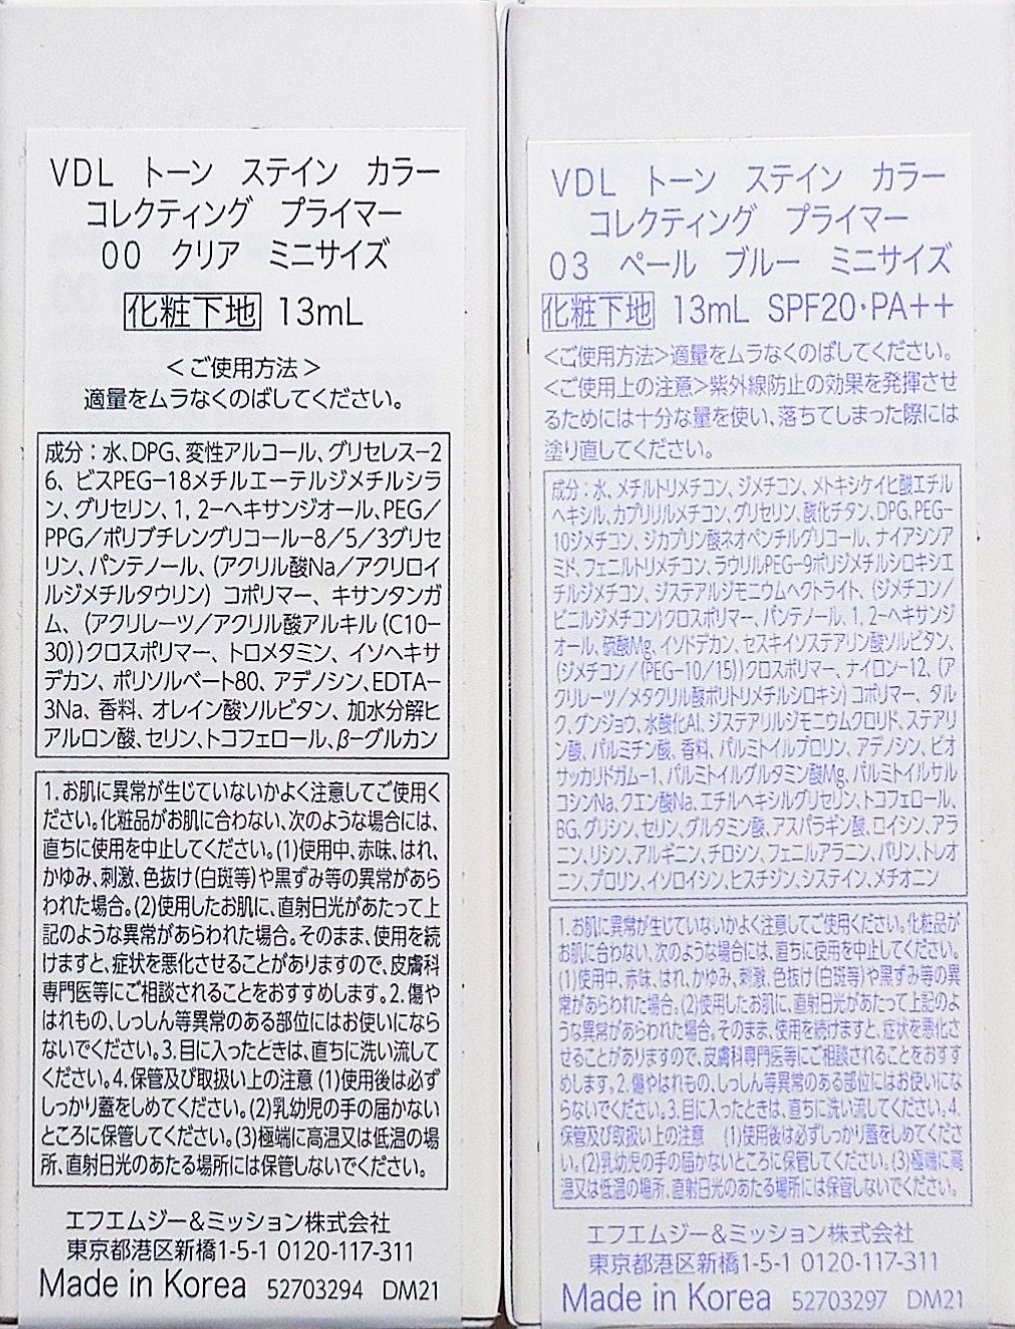 VDL トーン ステイン カラー
コレクティング プライマー
00 クリア ミニサイズ
化粧下地 13mL
<ご使用方法>
適量をムラなくのばしてください。
成分：水、DPG、変性アルコール、グリセレス-2
6、ビスPEG-18メチルエーテルジメチルシラ
ン、グリセリン、1, 2-ヘキサンジオール、PEG／
PPG／ポリブチレングリコール-8／5／3グリセ
リン、パンテノール、(アクリル酸Na／アクリロイ
ルジメチルタウリン) コポリマー、キサンタンガ
ム、(アクリレーツ／アクリル酸アルキル(C10-
30))クロスポリマー、トロメタミン、イソヘキサ
デカン、ポリソルベート80、アデノシン、EDTA-
3Na、香料、オレイン酸ソルビタン、加水分解ヒ
アルロン酸、セリン、トコフェロール、β-グルカン
1.お肌に異常が生じていないかよく注意してご使用く
ださい。化粧品がお肌に合わない、次のような場合には、
直ちに使用を中止してください。(1)使用中、赤味、はれ、
かゆみ、刺激、色抜け(白斑等)や黒ずみ等の異常があら
われた場合。(2)使用したお肌に、直射日光があたって上
記のような異常があらわれた場合。そのまま、使用を続
けますと、症状を悪化させることがありますので、皮膚科
専門医等にご相談されることをおすすめします。2.傷や
はれもの、しっしん等異常のある部位にはお使いになら
ないでください。3.目に入ったときは、直ちに洗い流して
ください。4.保管及び取扱い上の注意 (1)使用後は必ず
しっかり蓋をしめてください。(2)乳幼児の手の届かない
ところに保管してください。(3)極端に高温又は低温の場
所、直射日光のあたる場所には保管しないでください。
エフエムジー&ミッション株式会社
東京都港区新橋1-5-1 0120-117-311
Made in Korea 52703294 DM21
VDL トーン ステイン カラー
コレクティング プライマー
03 ペール ブルー ミニサイズ
化粧下地 13mL SPF20・PA++
<ご使用方法>適量をムラなくのばしてください。
<ご使用上の注意>紫外線防止の効果を発揮させ
るためには十分な量を使い、落ちてしまった際には
塗り直してください。
成分：水、メチルトリメチコン、ジメチコン、メトキシケイヒ酸エチル
ヘキシル、カプリリルメチコン、グリセリン、酸化チタン、DPG、PEG-
10ジメチコン、ジカプリン酸ネオペンチルグリコール、ナイアシンア
ミド、フェニルトリメチコン、ラウリルPEG-9ポリジメチルシロキシエ
チルジメチコン、ジステアルジモニウムヘクトライト、(ジメチコン／
ビニルジメチコン)クロスポリマー、パンテノール、1, 2-ヘキサンジ
オール、硫酸Mg、イソドデカン、セスキイソステアリン酸ソルビタン、
(ジメチコン／(PEG-10/15))クロスポリマー、ナイロン-12、(ア
クリレーツ／メタクリル酸ポリトリメチルシロキシ)コポリマー、タル
ク、グンジョウ、水酸化Al、ジステアリルジモニウムクロリド、ステアリ
ン酸、パルミチン酸、香料、パルミトイルプロリン、アデノシン、ビオ
サッカリドガム-1、パルミトイルグルタミン酸Mg、パルミトイルサル
コシンNa、クエン酸Na、エチルヘキシルグリセリン、トコフェロール、
BG、グリシン、セリン、グルタミン酸、アスパラギン酸、ロイシン、アラ
ニン、リシン、アルギニン、チロシン、フェニルアラニン、バリン、トレオ
ニン、プロリン、イソロイシン、ヒスチジン、システイン、メチオニン
1.お肌に異常が生じていないかよく注意してご使用ください。化粧品が
お肌に合わない、次のような場合には、直ちに使用を中止してください。
(1)使用中、赤味、はれ、かゆみ、刺激、色抜け(白斑等)や黒ずみ等の異
常があらわれた場合。(2)使用したお肌に、直射日光があたって上記のよ
うな異常があらわれた場合。そのまま、使用を続けますと、症状を悪化さ
せることがありますので、皮膚科専門医等にご相談されることをおすす
めします。2.傷やはれもの、しっしん等異常のある部位にはお使いにな
らないでください。3.目に入ったときは、直ちに洗い流してください。4.
保管及び取扱い上の注意 (1)使用後は必ずしっかり蓋をしめてくださ
い。(2)乳幼児の手の届かないところに保管してください。(3)極端に高
温又は低温の場所、直射日光のあたる場所には保管しないでください。
エフエムジー&ミッション株式会社
東京都港区新橋1-5-1 0120-117-311
Made in Korea 52703297 DM21